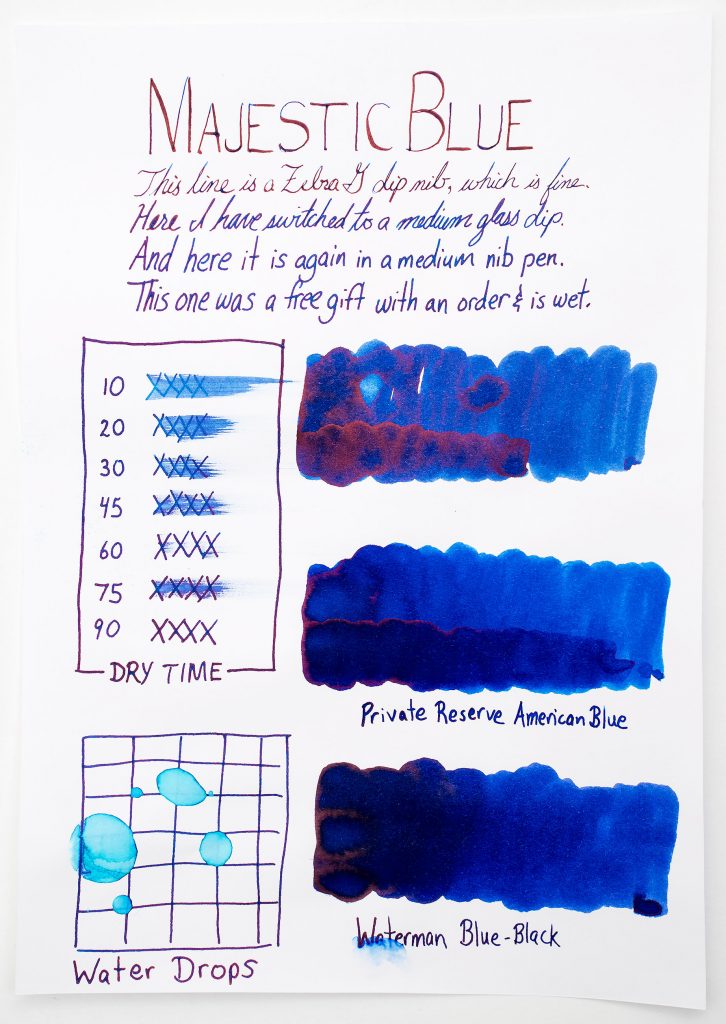 MAJESTIC BLUE
This line is a Zebra G dip nib, which is fine.
Here I have switched to a medium glass dip.
And here it is again in a medium nib pen.
This one was a free gift with an order & is wet.
10 XXXX
20 XXXX
30 XXX
45 XXXX
60 XXXX
75 XXXX
90 XXXX
DRY TIME
Private Reserve American Blue
Waterman Blue-Black
Water Drops